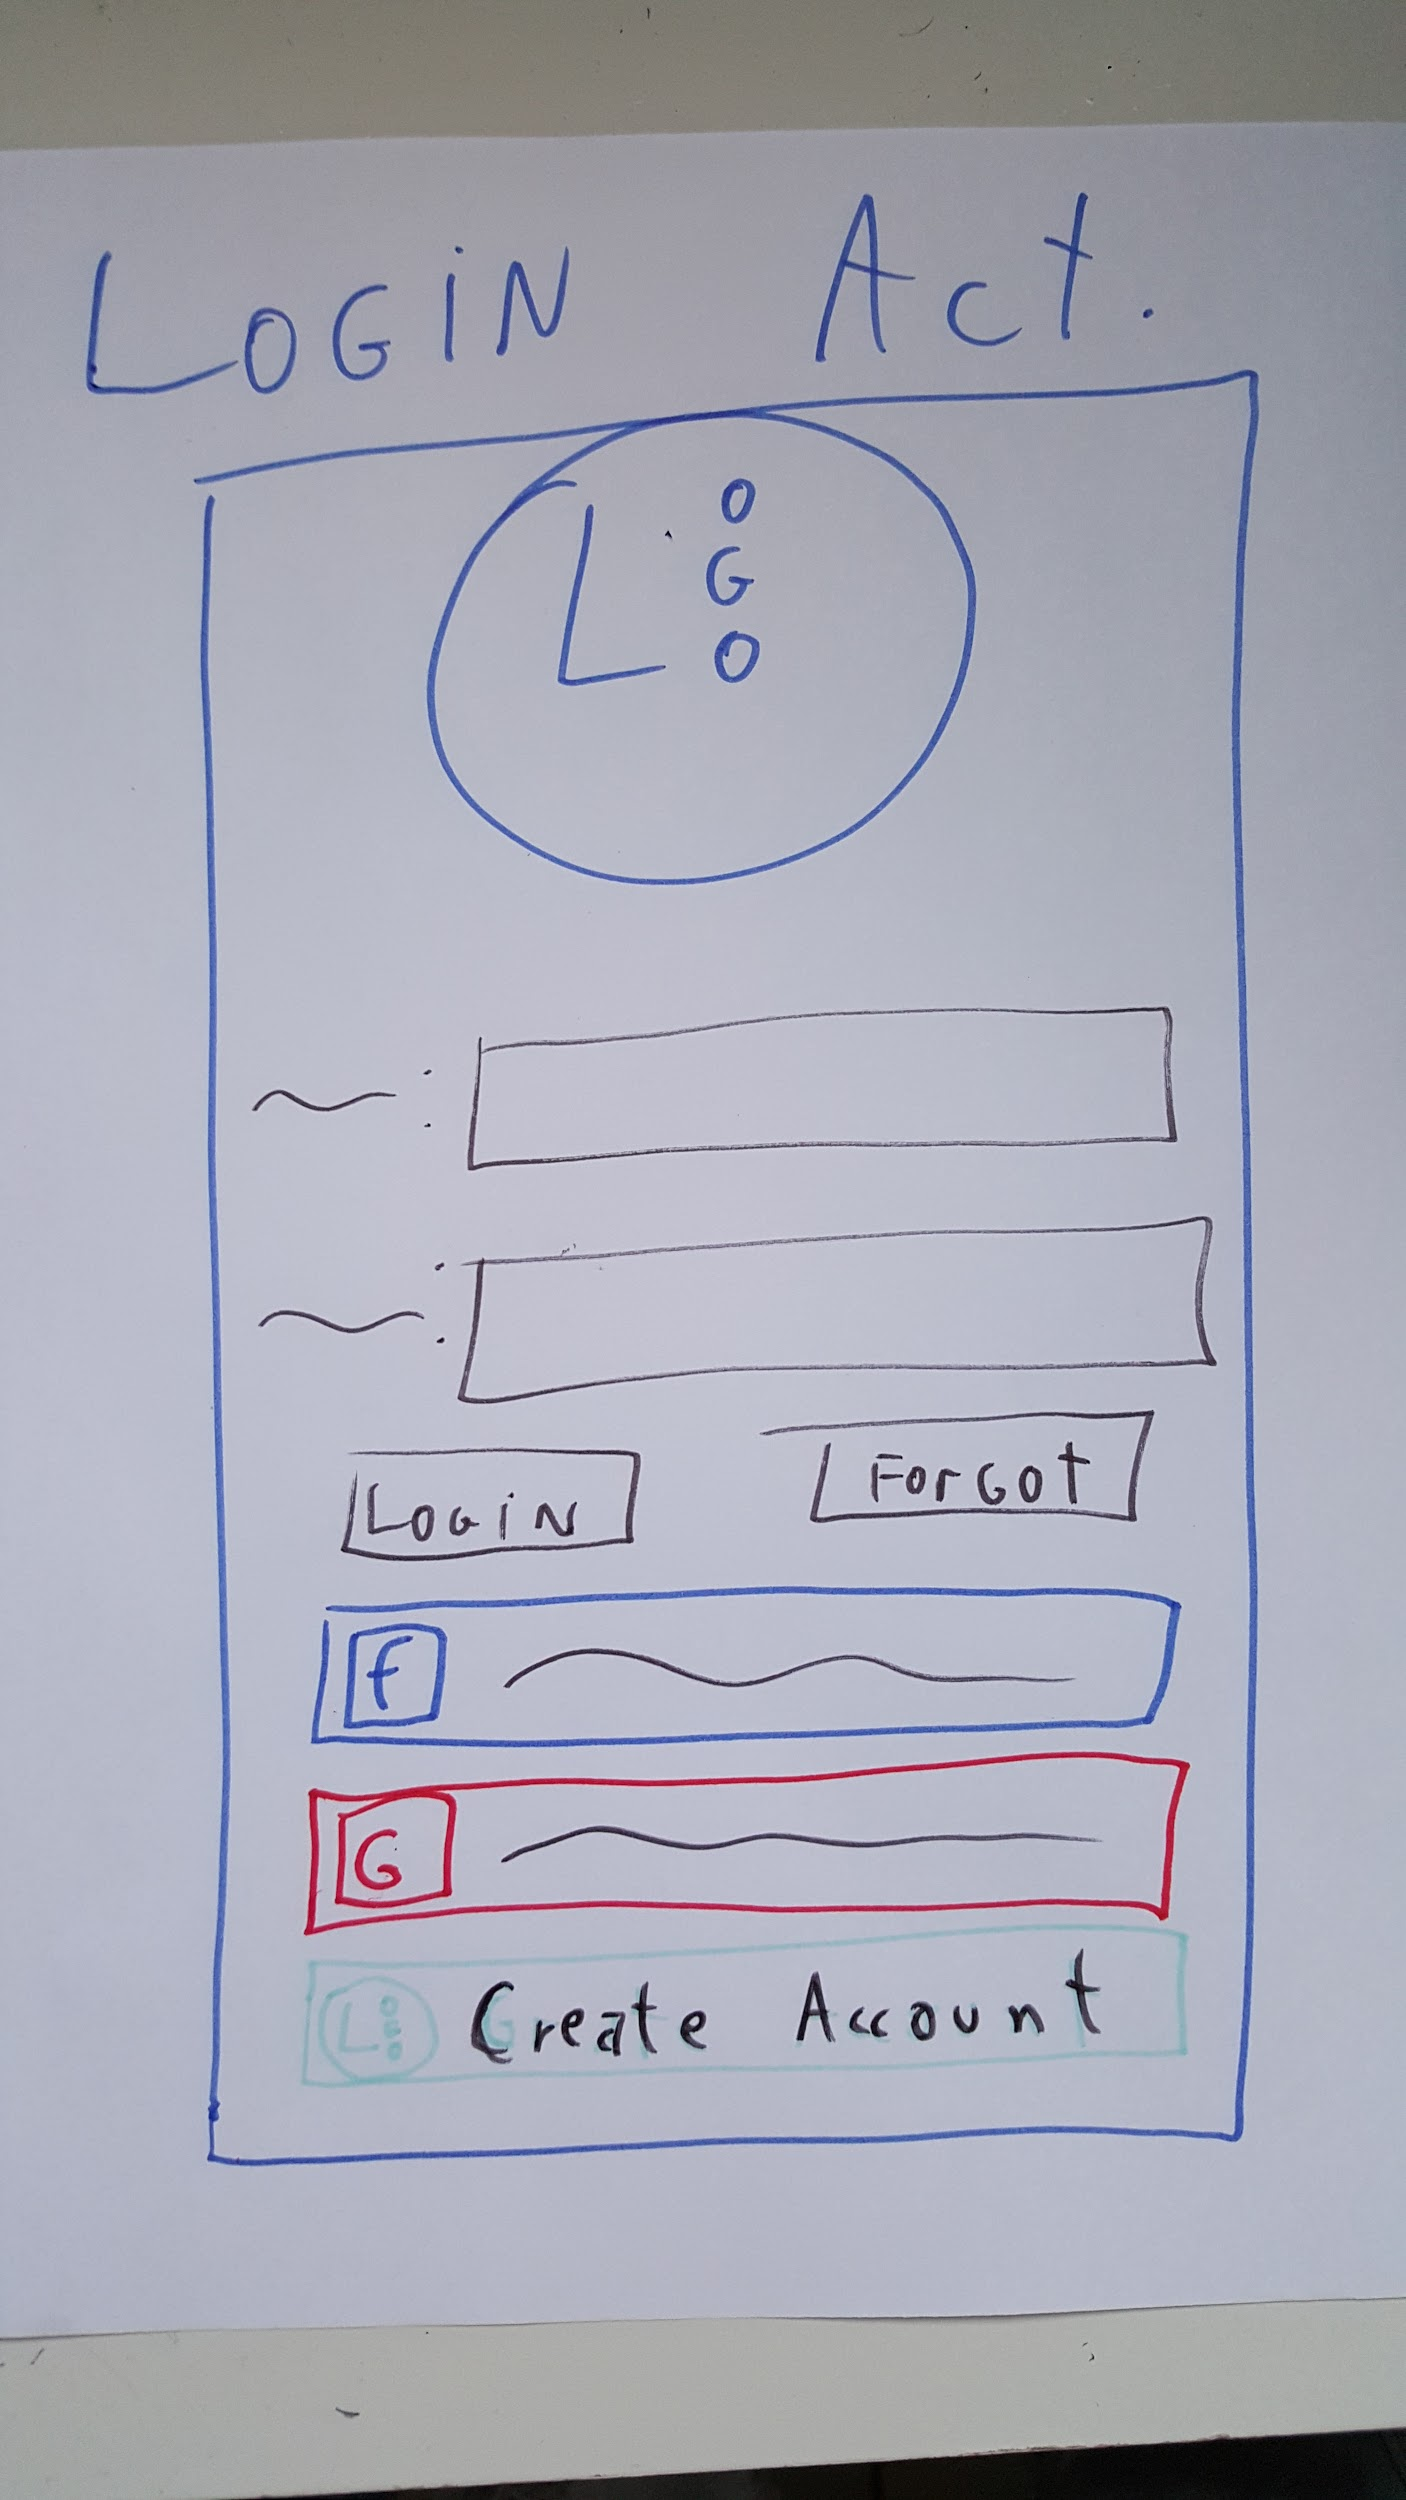 LOGIN Act.
L
O
G
O
:
:
LOGIN
FORGOT
f
G
LOGO Create Account